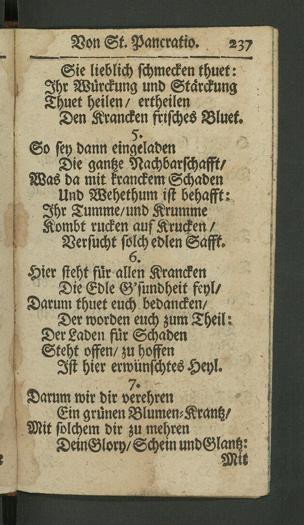 Von St. Pancratio. 237
Sie lieblich schmecken thuet:
Ihr Würckung und Stärckung
Thuet heilen/ ertheilen
Den Krancken frisches Bluet.
5.
So sey dann eingeladen
Die gantze Nachbarschafft/
Was da mit kranckem Schaden
Und Wehethum ist behafft:
Ihr Tumme/und Krumme
Kombt rucken auf Krucken/
Versucht solch edlen Safft.
6.
Hier steht für allen Krancken
Die Edle G'sundheit feyl/
Darum thuet euch bedancken/
Der worden euch zum Theil:
Der Laden für Schaden
Steht offen/ zu hoffen
Ist hier erwünschtes Heyl.
7.
Darum wir dir verehren
Ein grünen Blumen-Krantz/
Mit solchem dir zu mehren
Dein Glory/ Schein und Glantz:
Mit